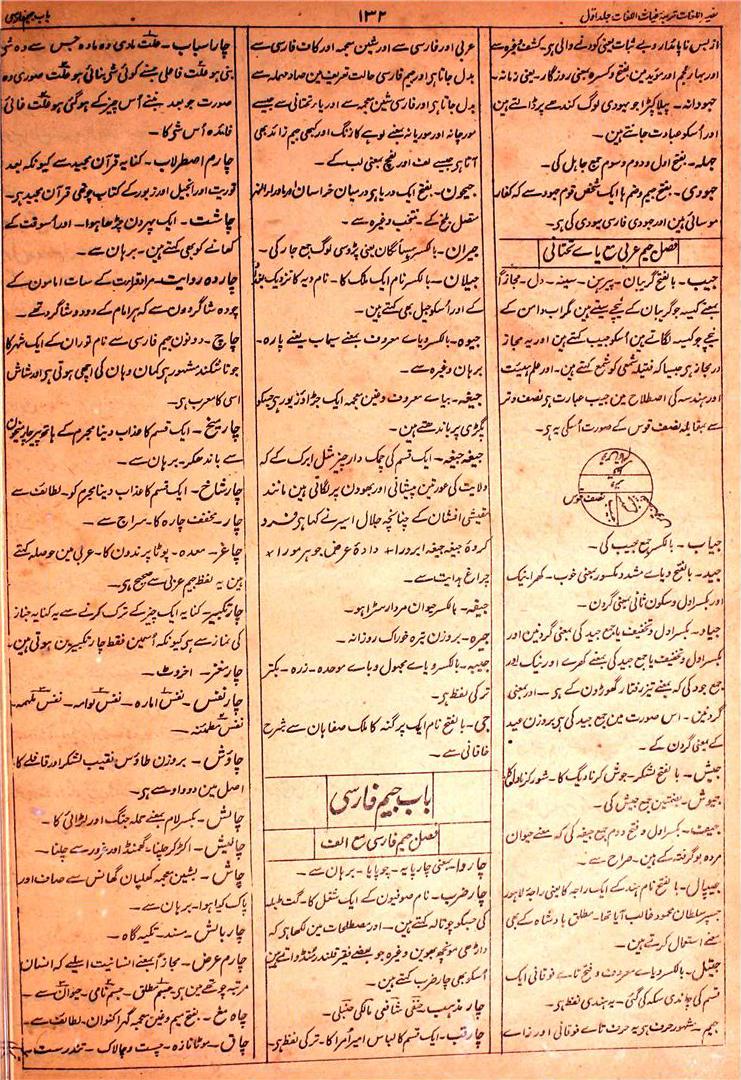 باب جیم فارسی
۱۳۲
مفید اللغات ترجمۂ غیاث اللغات جلد اول
از بس ناپائدار و بے ثبات یعنی کودنے والی ہی۔ کشف وغیرہ سے
اور بہار عجم اور مؤید مین بفتح و کسرہ بمعنی روزگار۔ یعنی زمانہ۔
جہودانہ۔ پیلا کپڑا جو یہودی لوگ کندھے پر ڈالتے ہین
اور اُسکو عبادت جانتے ہین۔
جہلہ۔ بفتح اول و دوم و سوم جمع جاہل کی۔
جہودی۔ بفتح جیم و ضم ہا ایک شخص قوم جہود سے کہ کفار
موسائی ہین اور جہودی فارسی یہودی کی ہی۔
فصل جیم عربی مع یاے تحتانی
جیب۔ بالفتح گریبان۔ پیرہن۔ سینہ۔ دل۔ مجازاً
بمعنے کیسہ جو گریبان کے نیچے سیتے ہین مگر اب دامن کے
نیچے جو کیسہ لگاتے ہین اُسکو جیب کہتے ہین اور یہ مجاز
در مجاز ہی جیسا کہ فتیلہ شمعی کو شمع کہتے ہین۔ اور علم ہیئت
اور ہندسہ کی اصطلاح مین جیب عبارت ہی نصف وتر
سے بمقابلہ نصف قوس کے صورت اُسکی یہ ہی۔
نصف قوس
جیاب۔ بالکسر جمع جیب کی۔
جید۔ بالفتح و یاے مشدد مکسور بمعنی خوب۔ کھرا۔ نیک
اور بکسر اول و سکون ثانی بمعنی گردن۔
جیاد۔ بکسر اول و تخفیف یا جمع جید کی بمعنی گردنین اور
بکسر اول و تخفیف یا جمع جید کی بمعنے کھرے اور نیک اور
جمع جود کی کہ بمعنے تیز رفتار گھوڑون کے ہی۔ اور بمعنی
گردنین۔ اس صورت مین جمع جید کی ہی بروزن عید
کے بمعنی گردن کے۔
جیش۔ بالفتح لشکر۔ جوش کرنا دیگ کا۔ شور کرنا دل کا
جیوش۔ بضمتین جمع جیش کی۔
جیف۔ بکسر اول و فتح دوم جمع جیفہ کی کہ بمعنے حیوان
مردہ بو گرفتہ کے ہین۔ صراح سے۔
جیپال۔ بالفتح نام ہند کے ایک راجہ کا یعنی راجہ لاہور
جسپر سلطان محمود غالب آیا تھا۔ مطلق بادشاہ کے بھی
معنے استعمال کرتے ہین۔
جیتل۔ بالکسر و یاے معروف و فتح تاے فوقانی ایک
قسم کی چاندی سکہ کی گئی۔ یہ ہندی لفظ ہی۔
جیم۔ مشہور حرف ہی یہ حرف تاے فوقانی اور زاے
عربی اور فارسی سے اور شین معجمہ اور کاف فارسی سے
بدل جاتا ہی اور جیم فارسی حالت تعریف مین صاد مہملہ سے
بدل جاتا ہی اور فارسی شین معجمہ سے اور یاے تحتانی سے جیسے
مورچانہ اور موریانہ بمعنے لوہے کا زنگ اور کبھی جیم زائد بھی
آتا ہی جیسے لف اور لفج بمعنی لب کے۔
جیحون۔ بفتح ایک دریا ہی درمیان خراسان اور ماوراء النہر
متصل بلخ کے۔ منتخب وغیرہ سے۔
جیران۔ بالکسر ہمسائگان یعنی پڑوسی لوگ جمع جار کی۔
جیلان۔ بالکسر نام ایک ملک کا۔ نام دیہ کا نزدیک بغداد
کے اور اُسکو جیل بھی کہتے ہین۔
جیوہ۔ بالکسر و یاے معروف بمعنے سیماب یعنے پارہ۔
برہان وغیرہ سے۔
جیغہ۔ بیاے معروف و غین معجمہ ایک جڑاؤ زیور ہی جسکو
پگڑی پر باندھتے ہین۔
جیغہ جیغہ۔ ایک قسم کی چمک دار چیز مثل ابرک کے کہ
ولایت کی عورتین پیشانی اور بھون پر لگاتی ہین مانند
مقیشی افشان کے چنانچہ جلال اسیر نے کہا ہی فرد
کردہ جیغہ جیغہ ابرو را + دادۂ عرض جوہر مو را +
چراغ ہدایت سے۔
جیفہ۔ بالکسر حیوان مردار سڑا ہو۔
جیرہ۔ بروزن تیرہ خوراک روزانہ۔
جیبہ۔ بالکسر و یاے مجہول و باے موحدہ۔ زرہ۔ بکتر
ترکی لفظ ہی۔
جی۔ بالفتح نام ایک پرگنہ کا ملک صفاہان سے شرح
خاقانی سے۔
باب جیم فارسی
فصل جیم فارسی مع الف
چاروا۔ بمعنی چارپایہ۔ چوپایا۔ برہان سے۔
چار ضرب۔ نام صوفیون کے ایک شغل کا۔ گت طبلہ
کی جسکو چوتالہ کہتے ہین۔ اور مصطلحات مین لکھا ہی کہ
داڑھی مونچھ بھوین وغیرہ جو بعضے فقیر قلندر منڈواتے ہین
اُسکو بھی چار ضرب کہتے ہین۔
چار مذہب حنفی شافعی مالکی حنبلی۔
چارقب۔ ایک قسم کا لباس امیر اُمرا کا۔ ترکی لفظ ہی۔
چار اسباب۔ علت مادی وہ مادہ جس سے وہ شی
بنی ہو علت فاعلی جسنے کوئی شی بنائی ہو علت صوری وہ
صورت جو بعد بننے اُس چیز کے ہوگئی ہو علت غائی
فائدہ اُس شی کا۔
چارم اصطرلاب۔ کنایہ قرآن مجید سے کیونکہ بعد
توریت اور انجیل اور زبور کے کتاب چوتھی قرآن مجید ہی۔
چاشت۔ ایک پہر دن چڑھا ہوا۔ اور اُسوقت کے
کھانے کو بھی کہتے ہین۔ برہان سے۔
چاردہ روایت۔ مراد قراءت کے سات امامون کے
چودہ شاگردون سے کہ ہر امام کے دو دو شاگرد تھے۔
چاچ۔ دونون جیم فارسی سے نام توران کے ایک شہر کا
جو تاشکند مشہور ہی کمان وہان کی اچھی ہوتی ہی اور شاش
اسی کا معرب ہی۔
چار میخ۔ ایک قسم کا عذاب دینا مجرم کے ہاتھ پیر چار میخون
سے باندھکر۔ برہان سے۔
چار شاخ۔ ایک قسم کا عذاب دینا مجرم کو۔ لطائف سے
چار۔ مخفف چارہ کا۔ سراج سے۔
چاغر۔ معدہ۔ پوٹا پرندون کا۔ عربی مین حوصلہ کہتے
ہین یہ لفظ جیم عربی سے صحیح ہی۔
چار تکبیر۔ کنایہ ایک چیز کے ترک کرنے سے یہ کنایہ جنازہ
کی نماز سے ہی کیونکہ اُسمین فقط چار تکبیرین ہوتی ہین۔
چار مغز۔ اخروٹ۔
چار نفس۔ نفس امارہ۔ نفس لوامہ۔ نفس ملہمہ۔
نفس مطمئنہ۔
چاؤش۔ بروزن طاؤس نقیب لشکر اور قافلے کا۔
اصل مین دو واو سے ہی۔
چالش۔ بکسر لام بمعنے حملہ جنگ اور لڑائی کا۔
چالیش۔ اکڑ کر چلنا۔ گھمنڈ اور غرور سے چلنا۔
چاش۔ بشین معجمہ کھلیان گھانس سے صاف اور
پاک کیا ہوا۔ برہان سے۔
چار بالش۔ مسند۔ تکیہ گاہ۔
چارم عرض۔ مجازاً بمعنے انسانیت اسلیے کہ انسان
مرتبہ چوتھے مین ہی جسم مطلق۔ جسم نامی۔ حیوان سے۔
چاہ مغ۔ بفتح میم و غین معجمہ گہرا کنوان۔ لطائف سے۔
چاق۔ موٹا تازہ۔ چست و چالاک۔ تندرست